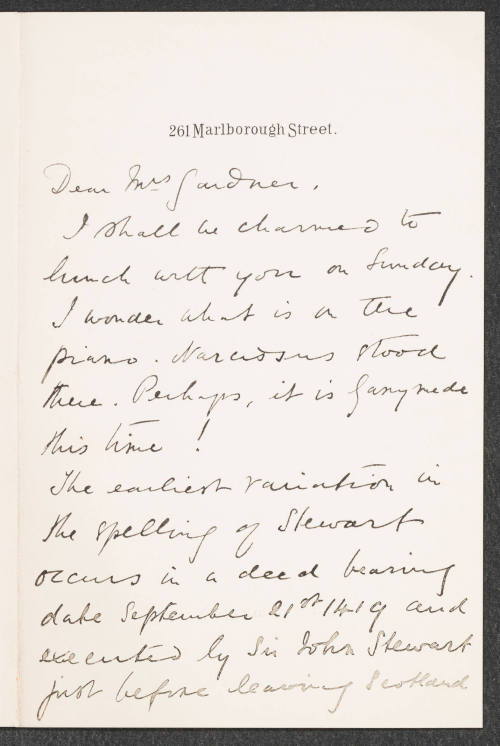 261 Marlborough Street.
Dear Mrs Gardner,
I shall be charmed to
lunch with you on Sunday.
I wonder what is on the
piano. Narcissus stood
there. Perhaps, it is Ganymede
this time!
The earliest variation in
the spelling of Stewart
occurs in a deed bearing
date September 21st 1419 and
executed by Sir John Stewart
just before leaving Scotland